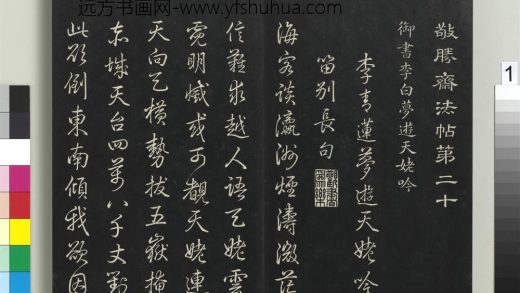 远方书画网-www.yfshuhua.com
敬勝齋法帖第二十
御書李白夢遊天姥吟
李青蓮夢遊天姥吟
留別長句
海客談瀛洲煙濤微茫
信難求越人語天姥雲
霓明滅或可覩天姥連
天向天橫勢拔五嶽掩
赤城天台四萬八千丈對
此欲倒東南傾我欲因
1